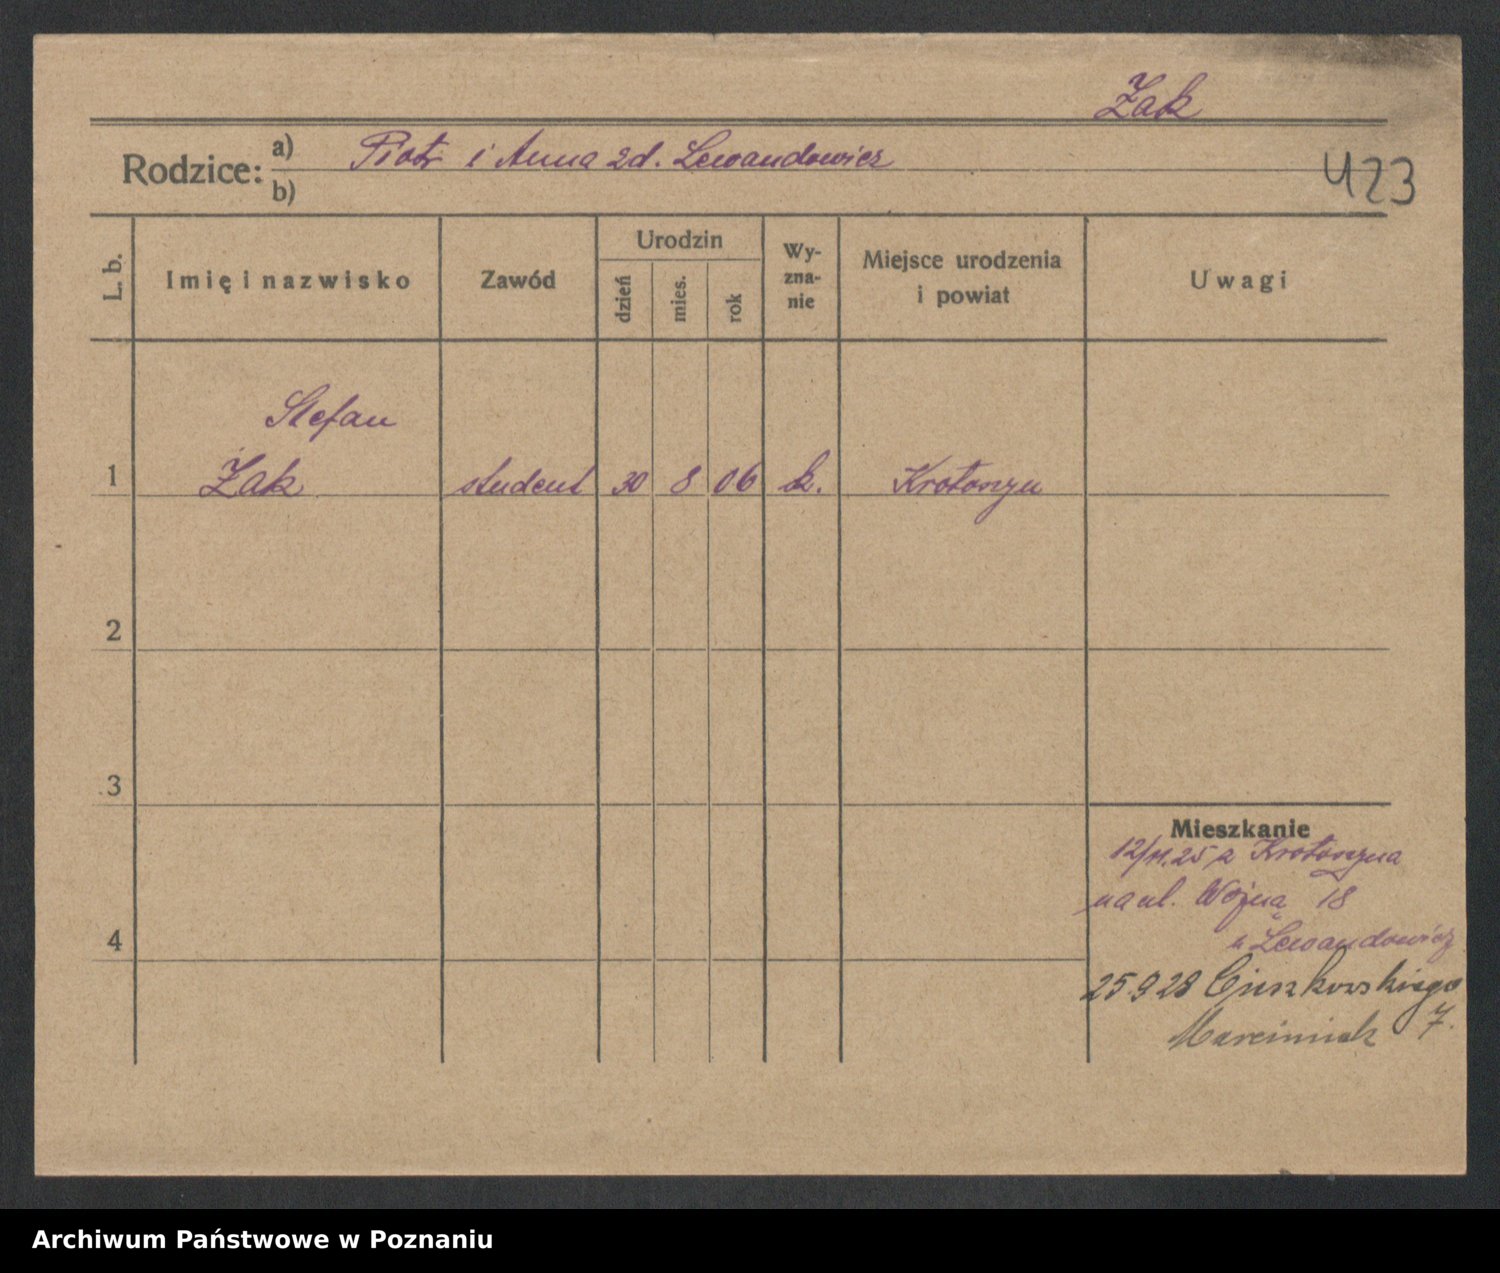 Żak
Rodzice: a) Piotr i Anna zd. Lewandowicz
b)
423
L. b.
Imię i nazwisko
Zawód
Urodzin
dzień
mies.
rok
Wy-
zna-
nie
Miejsce urodzenia
i powiat
Uwagi
Stefan
1 Żak student 30 8 06 k. Krotoszyn
2
3
4
Mieszkanie
12/11.25 z Krotoszyna
na ul. Wójna 18
u Lewandowicz
25.9 28 Cieszkowskiego
Marciniak 7.
Archiwum Państwowe w Poznaniu